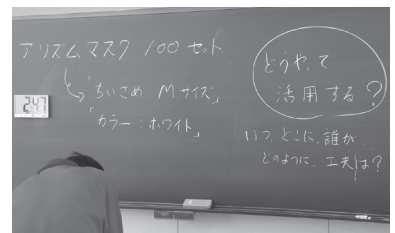 アリズムマスク 100セット
「ちいさめ Mサイズ」
「カラー:ホワイト」
どうやって
活用する?
いつ、どこに、誰が
どのように、工夫は?
2:47